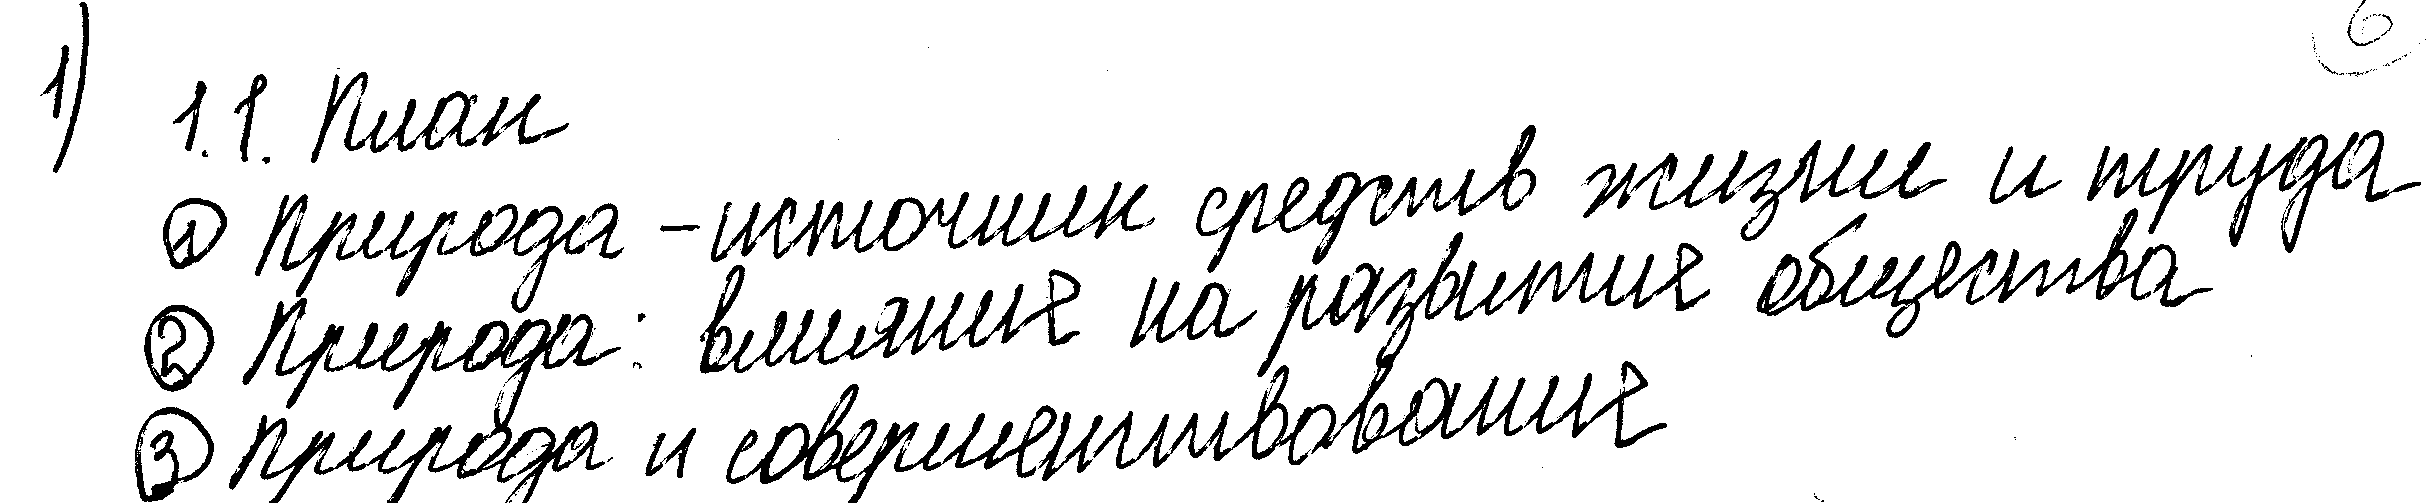 6
1) 1.1. План
① Природа – источник средств жизни и труда
② Природа: влияние на развитие общества
③ Природа и совершенствование